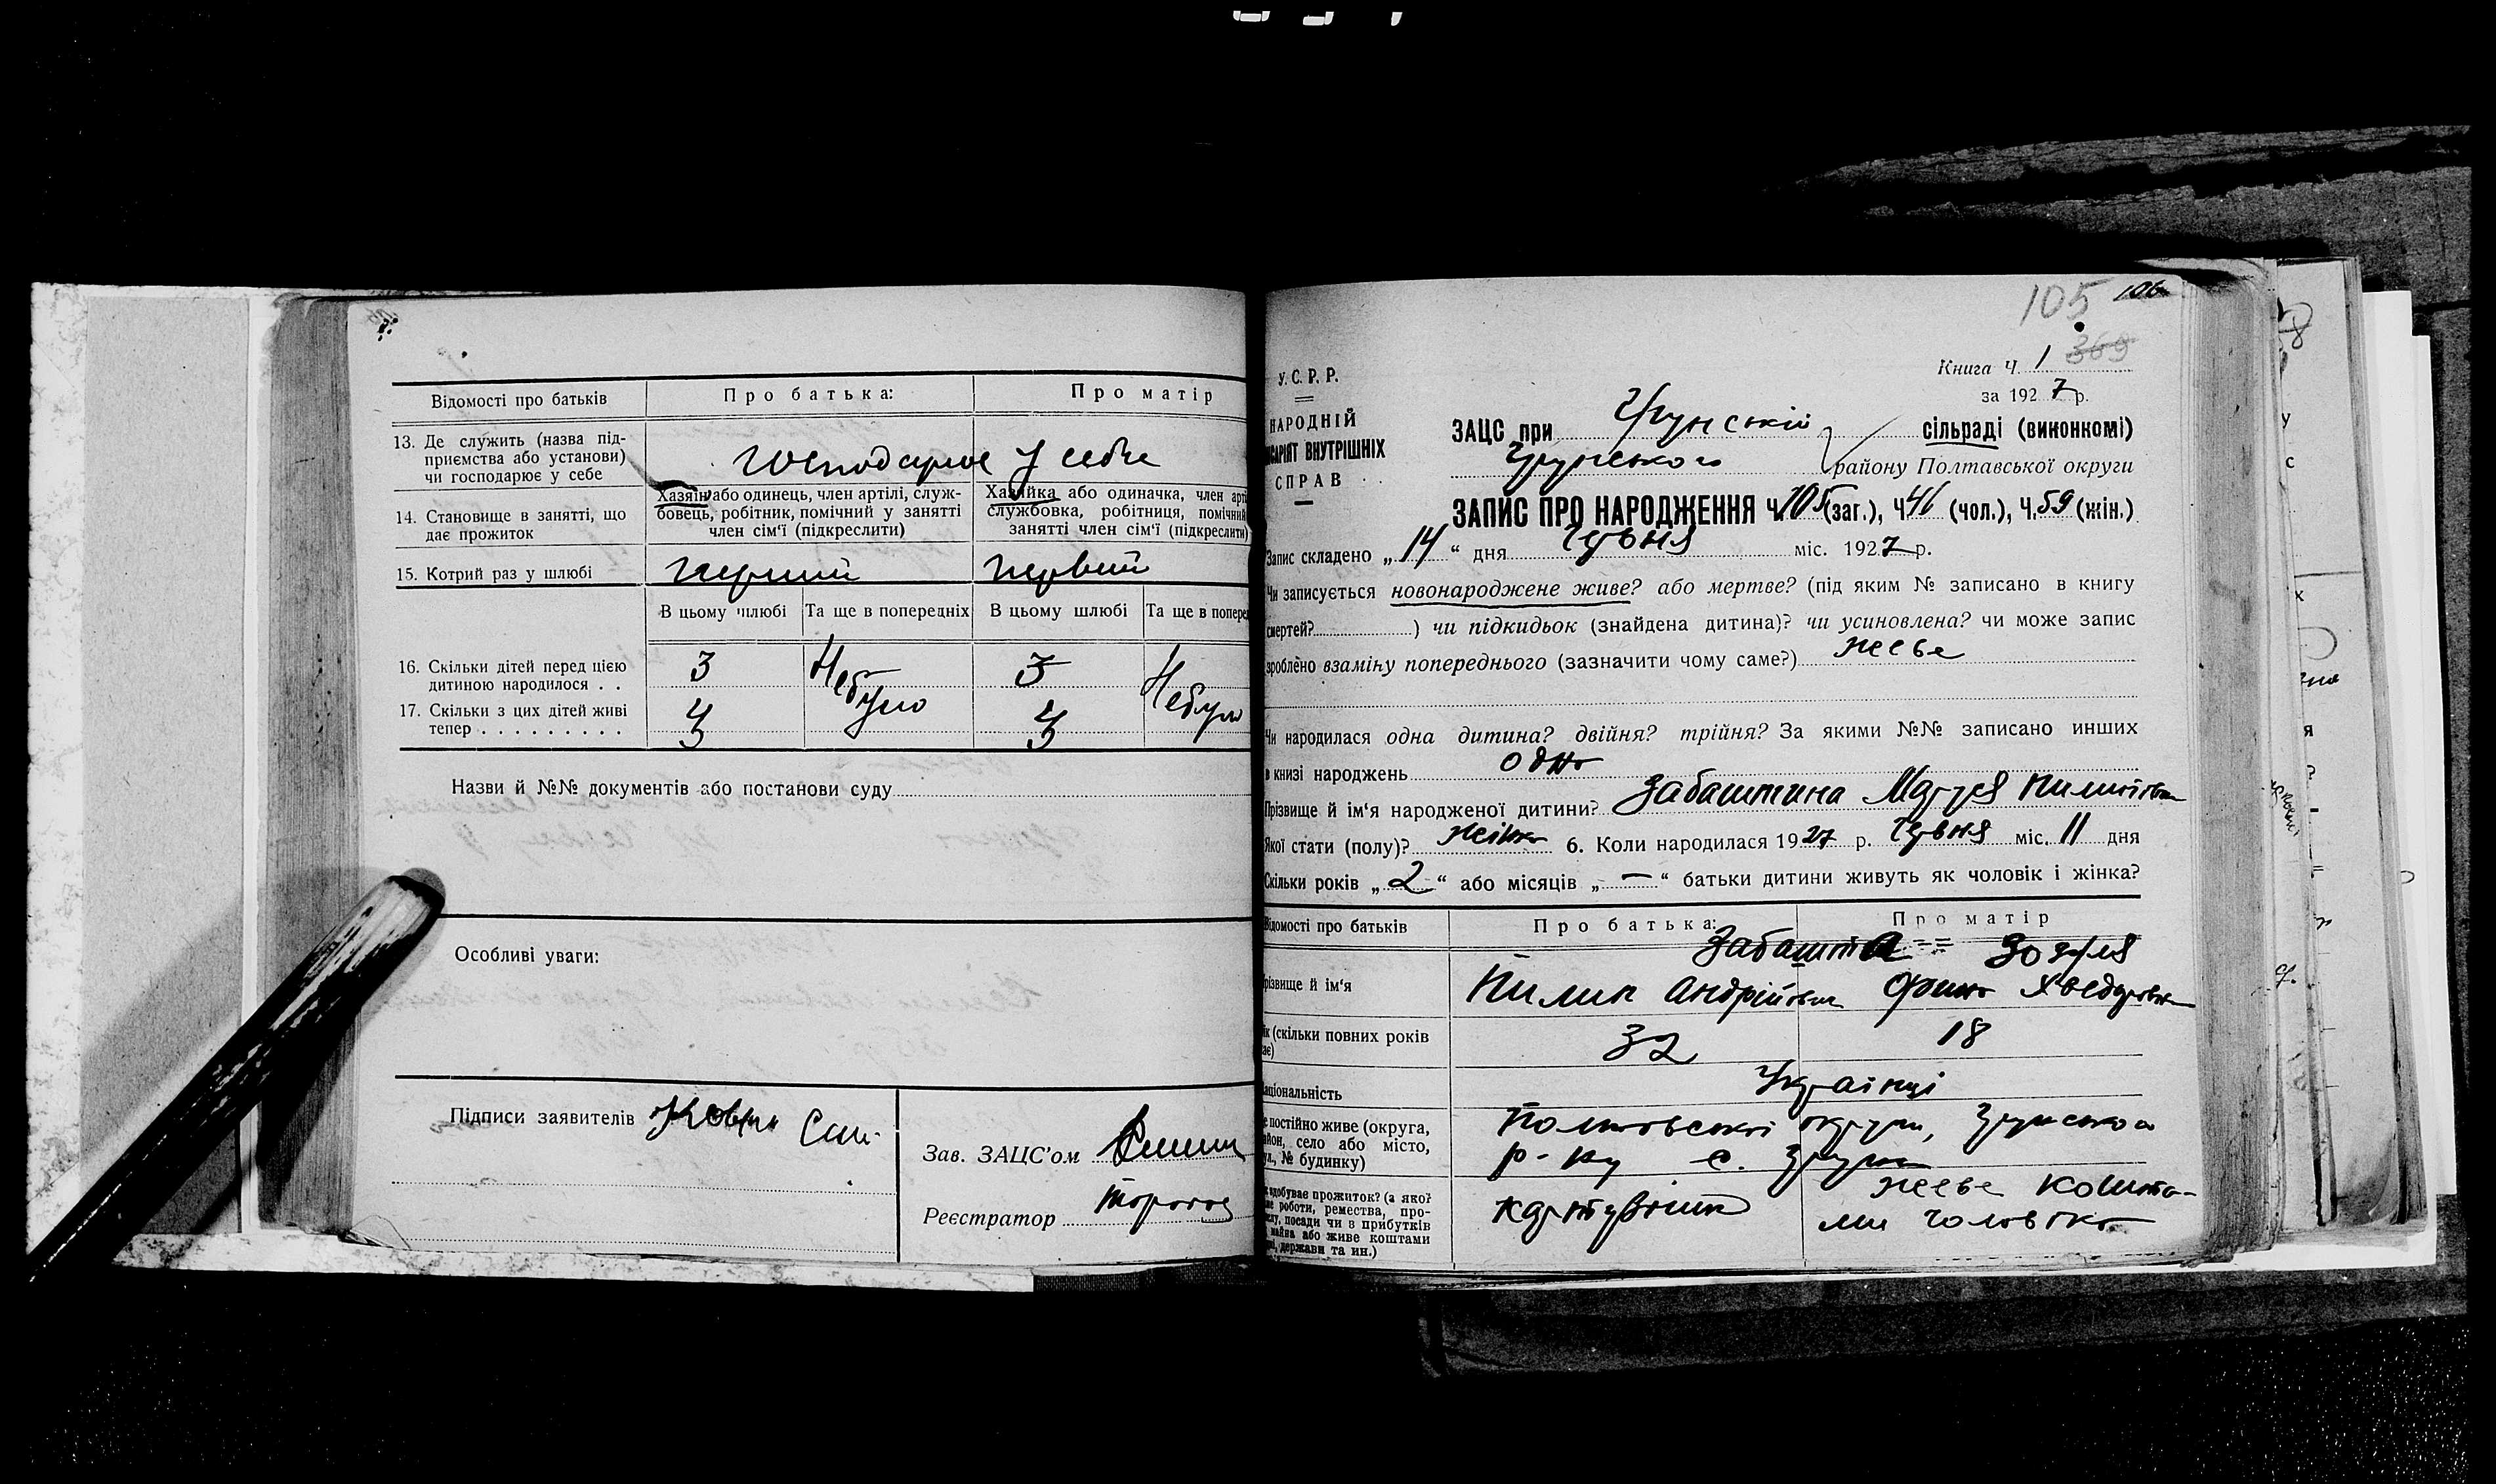 Відомості про батьків
Про батька:
Про матір
13. Де служить (назва під-
приємства або установи)
чи господарює у себе
господарює у себе
14. Становище в занятті, що
дає прожиток
Хазяїн або одинець, член артілі, служ-
бовець, робітник, помічний у занятті
член сім'ї (підкреслити)
Хазяйка або одиначка, член арті
службовка, робітниця, помічний
занятті член сім'ї (підкреслити)
15. Котрий раз у шлюбі
первий
В цьому шлюбі
Та ще в попередніх
В цьому шлюбі
Та ще в попере
16. Скільки дітей перед цією
дитиною народилося . .
3
Небуло
3
Небуло
17. Скільки з цих дітей живі
тепер . . . . . . . . .
3
3
Назви й №№ документів або постанови суду
Особливі уваги:
Підписи заявителів
Зав. ЗАЦС'ом
Реєстратор
105 106
369
Книга Ч. 1
за 1927 р.
У.С.Р.Р.
НАРОДНІЙ
САРІЯТ ВНУТРІШНІХ
СПРАВ
ЗАЦС при Грунській сільраді (виконкомі)
Грунського району Полтавської округи
ЗАПИС ПРО НАРОДЖЕННЯ Ч. 105 (заг.), Ч. 46 (чол.), Ч. 59 (жін.)
Запис складено „14“ дня Червня міс. 1927 р.
Чи записується новонароджене живе? або мертве? (під яким № записано в книгу
смертей? ) чи підкидьок (знайдена дитина)? чи усиновлена? чи може запис
зроблено взаміну попереднього (зазначити чому саме?) живе
Чи народилася одна дитина? двійня? трійня? За якими №№ записано инших
в книзі народжень одна
Прізвище й ім'я народженої дитини? Забаштина Маруся Пилипівна
Якої стати (полу)? жіноч 6. Коли народилася 1927 р. Червня міс. 11 дня
Скільки років „2“ або місяців „—“ батьки дитини живуть як чоловік і жінка?
Відомості про батьків
Про батька:
Про матір
Забашта
різвище й ім'я
Пилип Андрійович
Хведоровна
ік (скільки повних років
ає)
32
18
аціональність
Українці
е постійно живе (округа,
айон, село або місто,
ул., № будинку)
Полтавської округи, Грунського
р-ну с. Грунь
к здобуває прожиток? (а якої
ме роботи, ремества, про-
ислу, посади чи в прибутків
майна або живе коштами
ині, держави та ин.)
живе кошта-
ми чоловіка